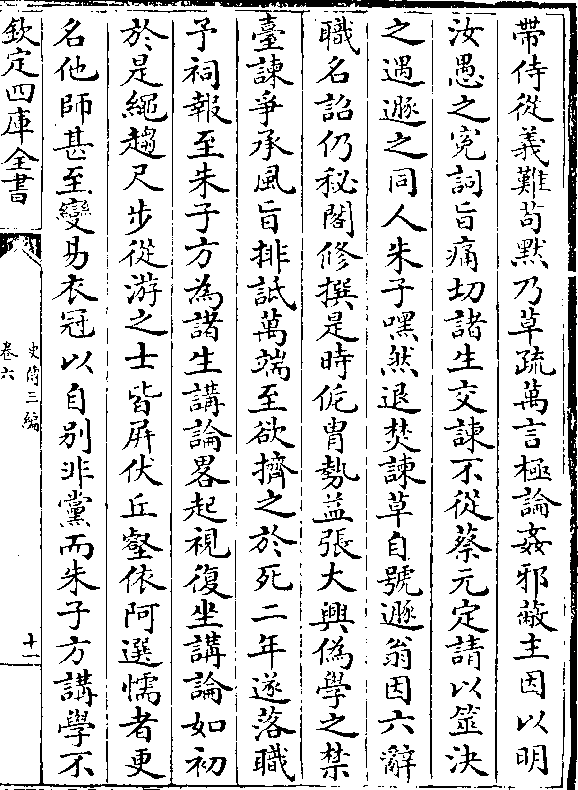 帶侍從義難苟黙乃草疏萬言極論姦邪蔽主因以明
汝愚之寃詞旨痛切諸生交諫不從蔡元定請以筮決
之遇遯之同人朱子嘿然退焚諫草自號遯翁因六辭
職名詔仍秘閣修撰是時侂胄勢益張大興偽學之禁
臺諫爭承風旨排詆萬端至欲擠之於死二年遂落職
予祠報至朱子方為諸生講論畧起視復坐講論如初
於是繩趨尺步從游之士皆屏伏丘壑依阿選懦者更
名他師甚至變易衣冠以自别非黨而朱子方講學不
欽定四庫全書
史傳三編
卷六
十一